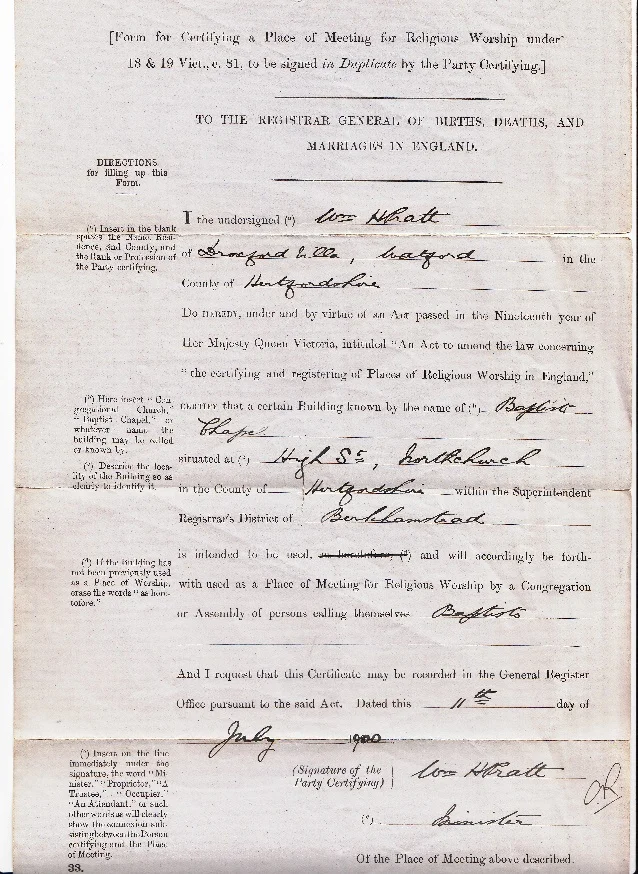 [Form for Certifying a Place of Meeting for Religious Worship under
18 & 19 Vict., c. 81, to be signed in Duplicate by the Party Certifying.]
TO THE REGISTRAR GENERAL OF BIRTHS, DEATHS, AND
MARRIAGES IN ENGLAND.
DIRECTIONS
for filling up this
Form.
I the undersigned (a) Wm H Pratt
(a) Insert in the blank
spaces the Name, Resi-
dence, and County, and
the Rank or Profession of
the Party certifying.
of Villa, Watford in the
County of Hertfordshire
Do HEREBY, under and by virtue of an Act passed in the Nineteenth year of
Her Majesty Queen Victoria, intituled "An Act to amend the law concerning
"the certifying and registering of Places of Religious Worship in England,"
(b) Here insert "Con-
gregational Church,"
"Baptist Chapel," or
whatever name the
building may be called
or known by.
CERTIFY that a certain Building known by the name of (b) Baptist
Chapel
situated at (c) High St, Northchurch
(c) Describe the loca-
lity of the Building so as
clearly to identify it.
in the County of Hertfordshire within the Superintendent
Registrar's District of Berkhamstead
(d) If the Building has
not been previously used
as a Place of Worship,
erase the words "as here-
tofore."
is intended to be used, as heretofore, (d) and will accordingly be forth-
with used as a Place of Meeting for Religious Worship by a Congregation
or Assembly of persons calling themselves Baptists
And I request that this Certificate may be recorded in the General Register
Office pursuant to the said Act. Dated this 11th day of
July 1900
(e) Insert on the line
immediately under the
signature, the word "Mi-
nister," "Proprietor," "A
Trustee," "Occupier,"
"An Attendant," or such
other words as will clearly
show the connexion sub-
sisting between the Person
certifying and the Place
of Meeting.
(Signature of the
Party Certifying) Wm H Pratt
(e) Minister
Of the Place of Meeting above described.
33.